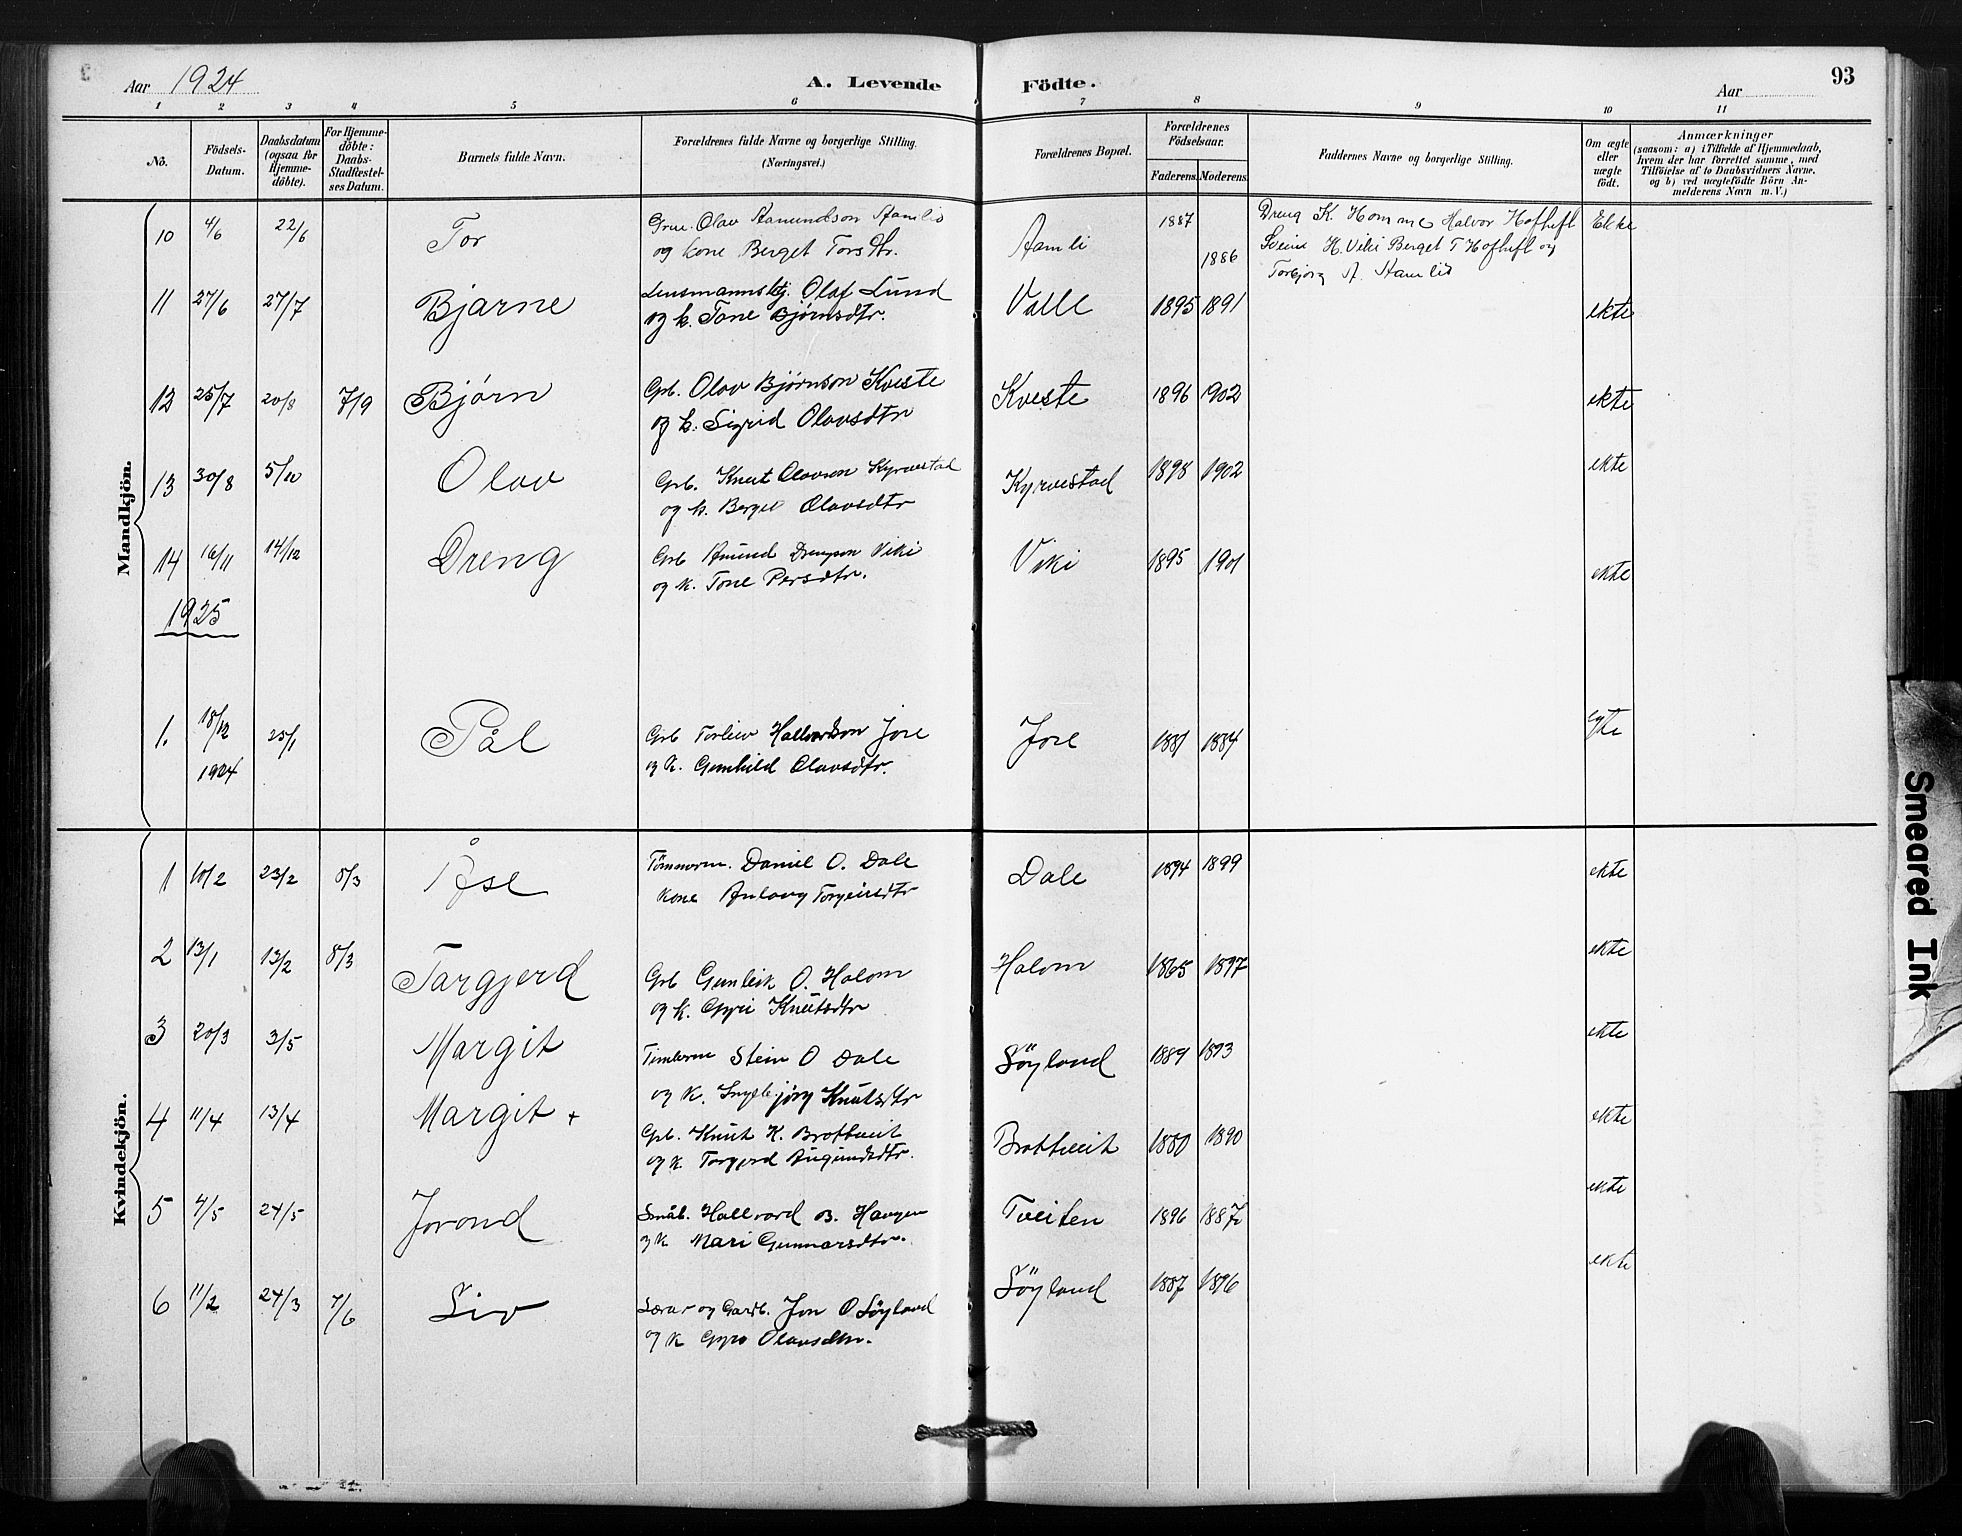 Aar 1924
A. Levende Födte.
Aar
93
1 2 3 4 5 6 7 8 9 10 11
No.
Födsels-Datum.
Daabsdatum (ogsaa for Hjemme-döbte).
For Hjemme-döbte: Daabs-Stadfestel-ses Datum.
Barnets fulde Navn.
Forældrenes fulde Navne og borgerlige Stilling. (Næringsvei.)
Forældrenes Bopæl.
Forældrenes Födselsaar.
Faderens. Moderens.
Faddernes Navne og borgerlige Stilling.
Om ægte eller uægte födt.
Anmærkninger
(saasom: a) i Tilfælde af Hjemmedaab,
hvem der har forrettet samme, med
Tilföielse af to Daabsvidners Navne.
og b) ved uægtefödte Börn An-
melderens Navn m. V.)
Mandkjön.
10 4/6 22/6 Tor Olav Aamundson Aamlid Aamli 1887 Dreng K. Homme Halvor Hoftuft Ekte
og kone Berget Torsdtr. 1886 Svein H. Viki Berget T Hoftuft og
Torbjørg A. Aamlid
11 27/6 27/7 Bjarne Lensmannsbtj. Olaf Lund Valle 1895 1891 ekte
og k. Tone Bjørnsdtr.
12 25/7 20/8 7/9 Bjørn Grb. Olav Bjørnson Kveste Kveste 1896 1902 ekte
og k. Sigrid Olavsdtr
13 30/8 5/10 Olav Grb. Knut Olavson Kyrvestad Kyrvestad 1898 1902 ekte
og k. Berget Olavsdtr
14 16/11 14/12 Dreng Grb Amund Drengson Viki Viki 1895 1901 ekte
og k. Tone Persdtr.
1925
1. 18/12 1924 25/1 Pål Grb Torleiv Hallvardson Jore Jore 1881 1884 Egte
og k. Gunhild Olavsdtr.
Kvindekjön.
1 10/2 23/2 8/3 Åse Tömmerm. Daniel O. Dale Dale 1894 1899 ekte
kone Anlaug Torgeirsdtr
2 13/1 13/2 8/3 Targjerd Grb Gunleik O. Holom Holom 1865 1897 ekte
og k. Gyri Knutsdtr
3 20/3 3/5 Margit Stein O Dale Söyland 1889 1893 ekte
og k. Ingebjörg Knutsdtr
4 11/4 13/4 Margit + Grb. Knut K. Brottveit Brottveit 1880 1890 ekte
og k Torgjerd Augundsdtr.
5 4/5 24/5 Jorond Småb. Hallvard B. Haugen Tveiten 1896 1887 ekte
og k Mari Gunnarsdtr.
6 11/2 24/3 7/6 Liv Lærar og Gardb. Jon O Söyland Söyland 1887 1896 ekte
og k Gyro Olavsdtr.
Smeared Ink